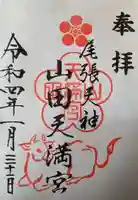 奉拝
尾張天神
山田天満宮
令和四年一月三十日